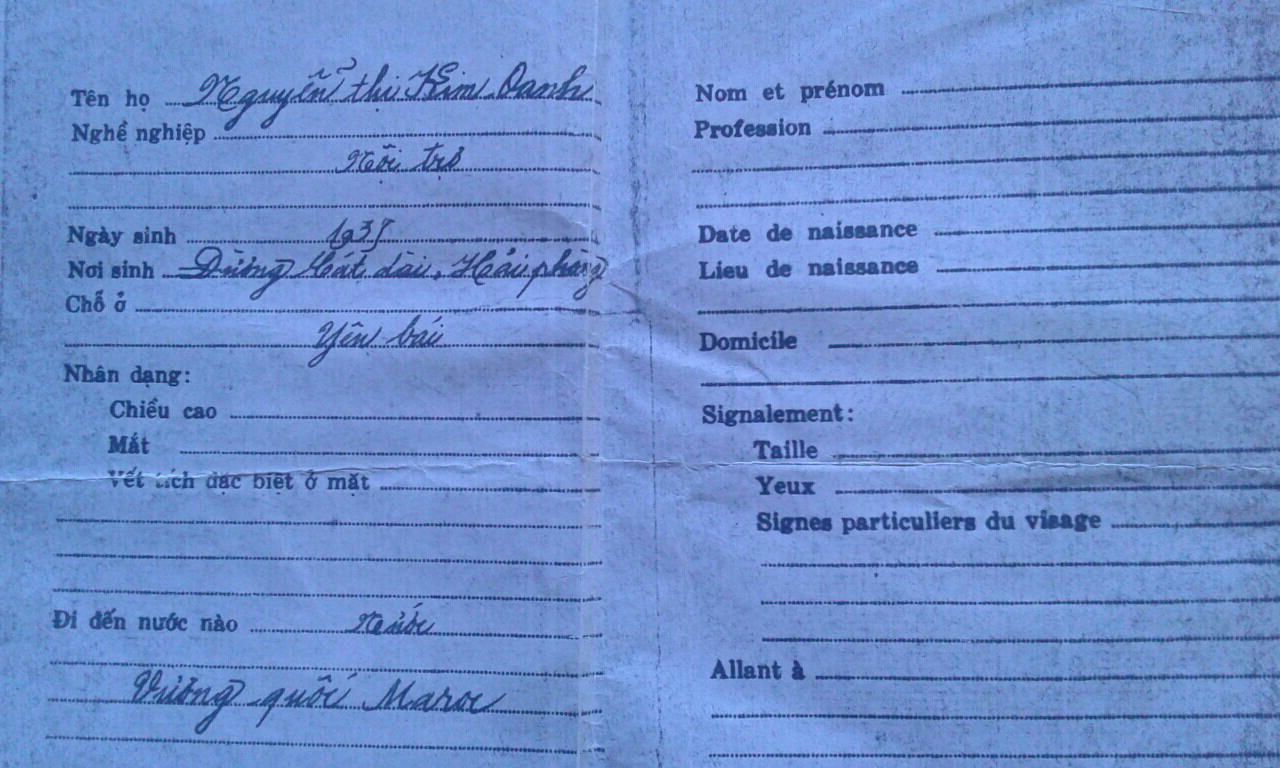 Tên họ Nguyễn thị Kim Oanh
Nghề nghiệp
Nội trợ
Ngày sinh 1935
Nơi sinh Đường Cát dài, Hải phòng
Chỗ ở
Yên bái
Nhân dạng:
Chiều cao
Mắt
Vết tích đặc biệt ở mặt
Đi đến nước nào Nước
Vương quốc Maroc
Nom et prénom
Profession
Date de naissance
Lieu de naissance
Domicile
Signalement:
Taille
Yeux
Signes particuliers du visage
Allant à